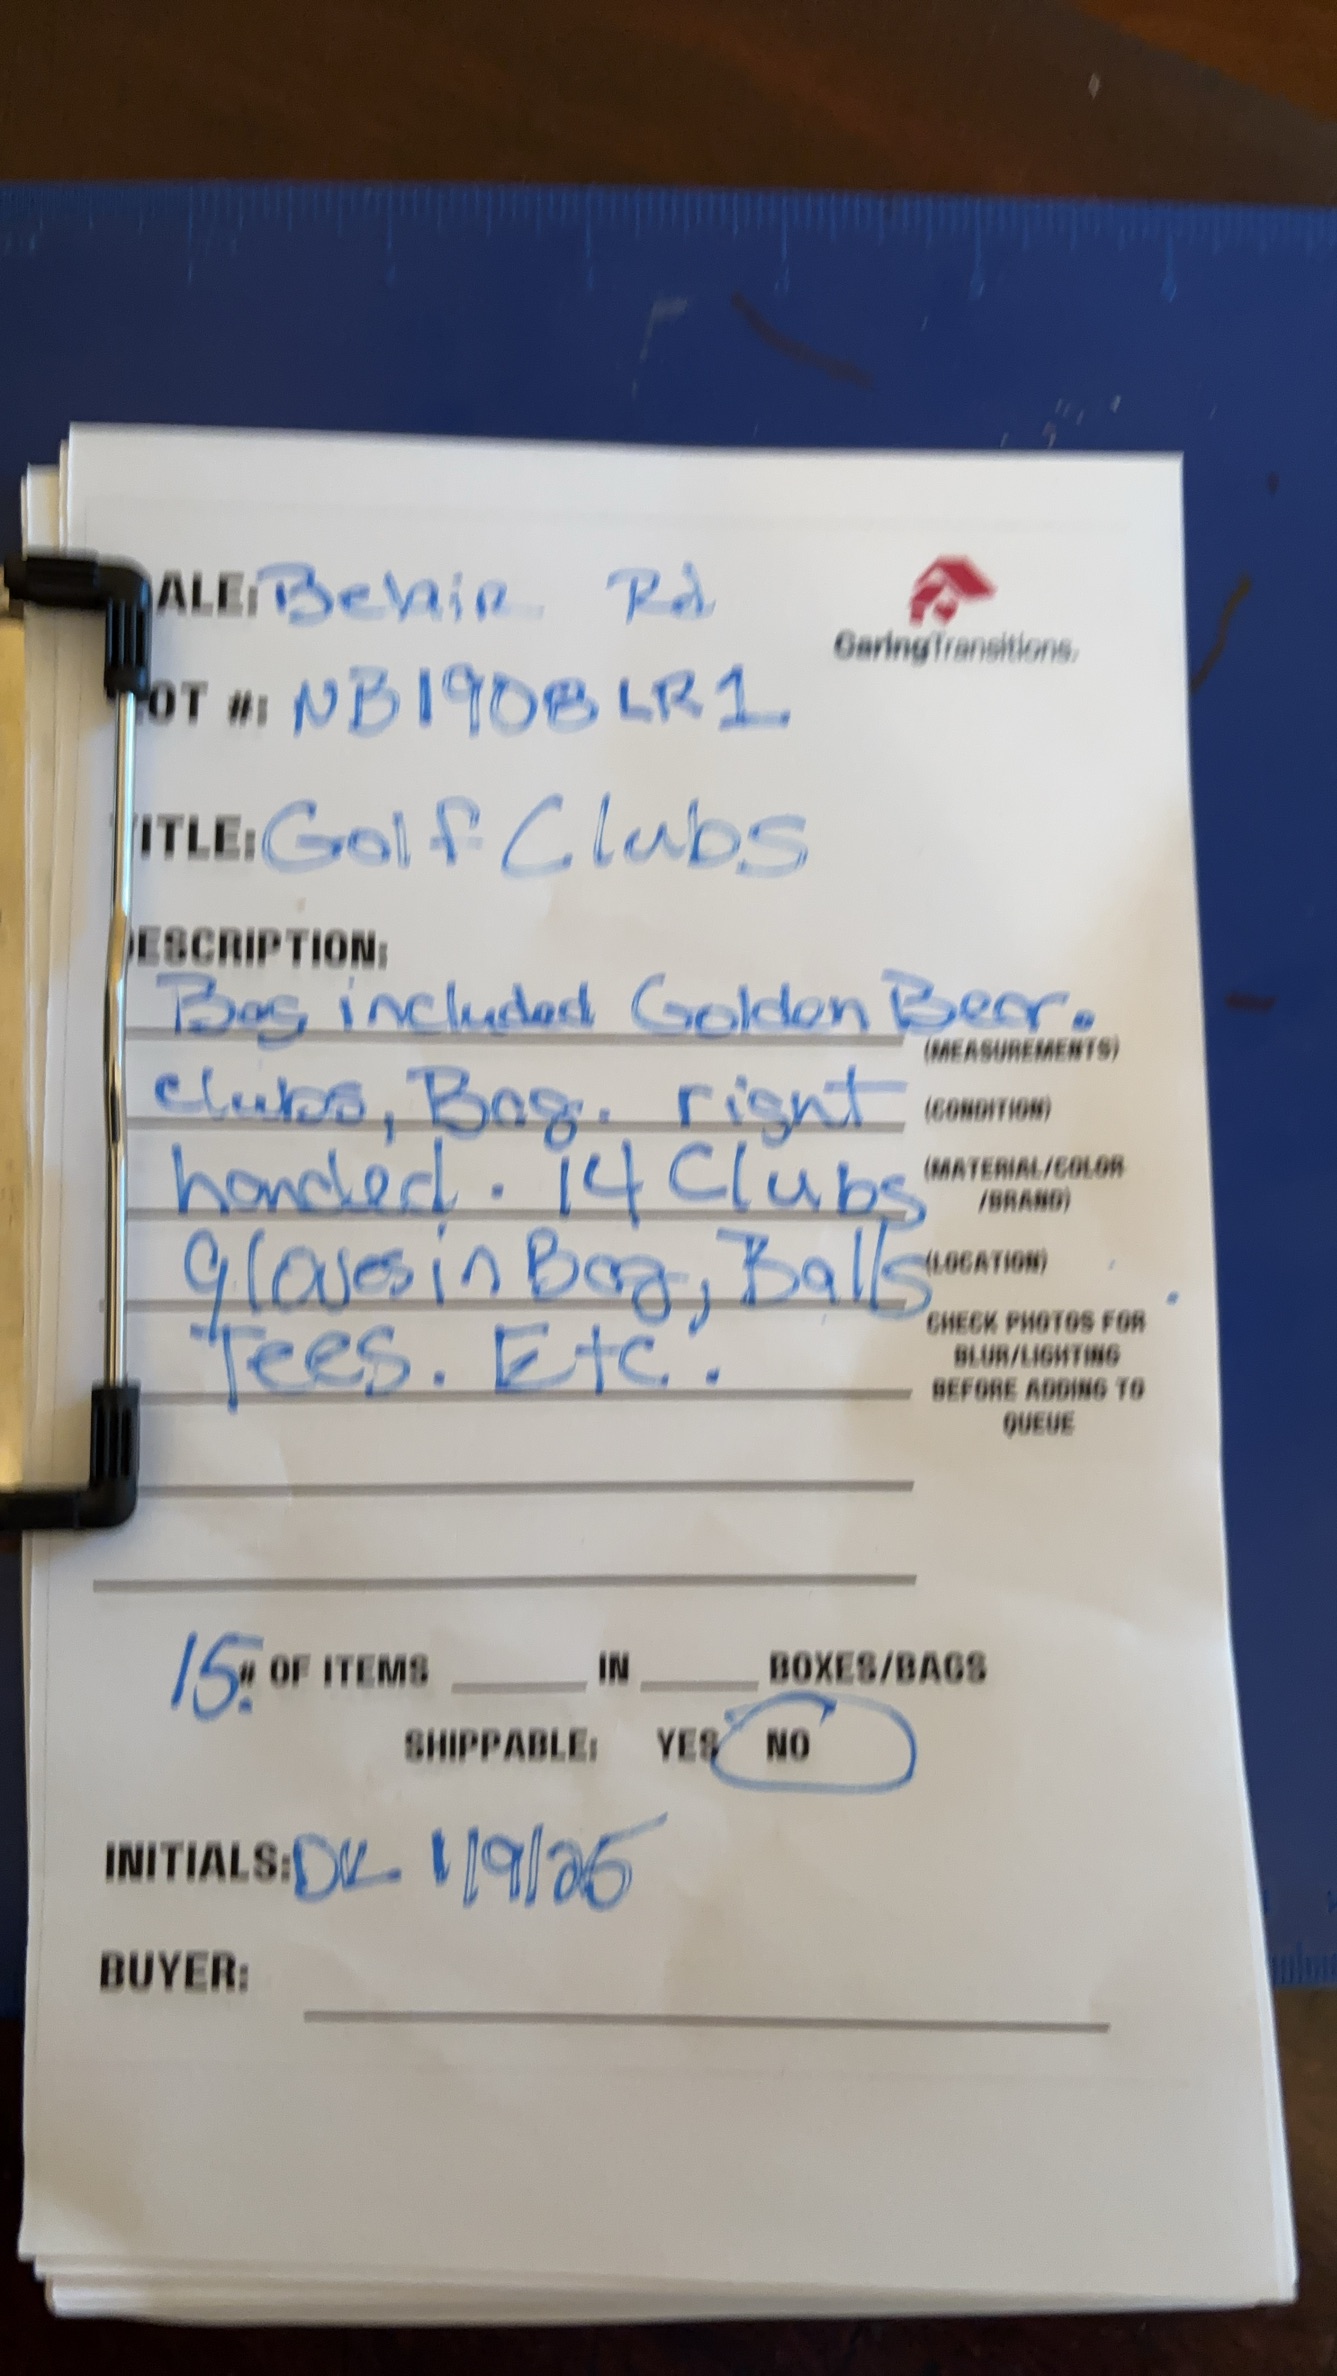 ALE: Belair Rd
CaringTransitions.
OT #: NB1908LR1
ITLE: Golf Clubs
ESCRIPTION:
Bag included Golden Bear.
(MEASUREMENTS)
clubs, Bag. right
(CONDITION)
handed. 14 Clubs
(MATERIAL/COLOR
/BRAND)
gloves in Bag, Balls
(LOCATION)
Tees. Etc.
CHECK PHOTOS FOR
BLUR/LIGHTING
BEFORE ADDING TO
QUEUE
15 # OF ITEMS ____ IN ____ BOXES/BAGS
SHIPPABLE: YES NO
INITIALS: DK 1/9/25
BUYER: